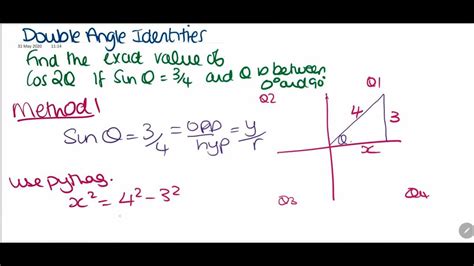 Double Angle Identities
31 May 2020 11:14
Find the exact value of
Cos 2Q if Sin Q = 3/4 and Q is between
0° and 90°
Method 1
Sin Q = 3/4 = opp/hyp = y/r
use pythag.
x² = 4² - 3²
Q2
Q1
4
3
Q
x
Q3
Q4